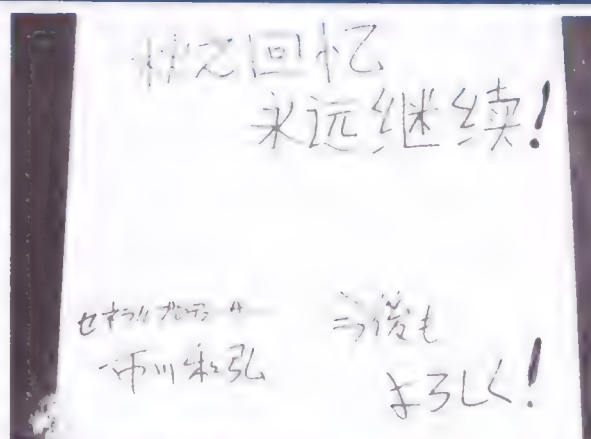 秋之回忆
永远继续!
ゼネラルプロデューサー
市川和弘
今後も
よろしく!